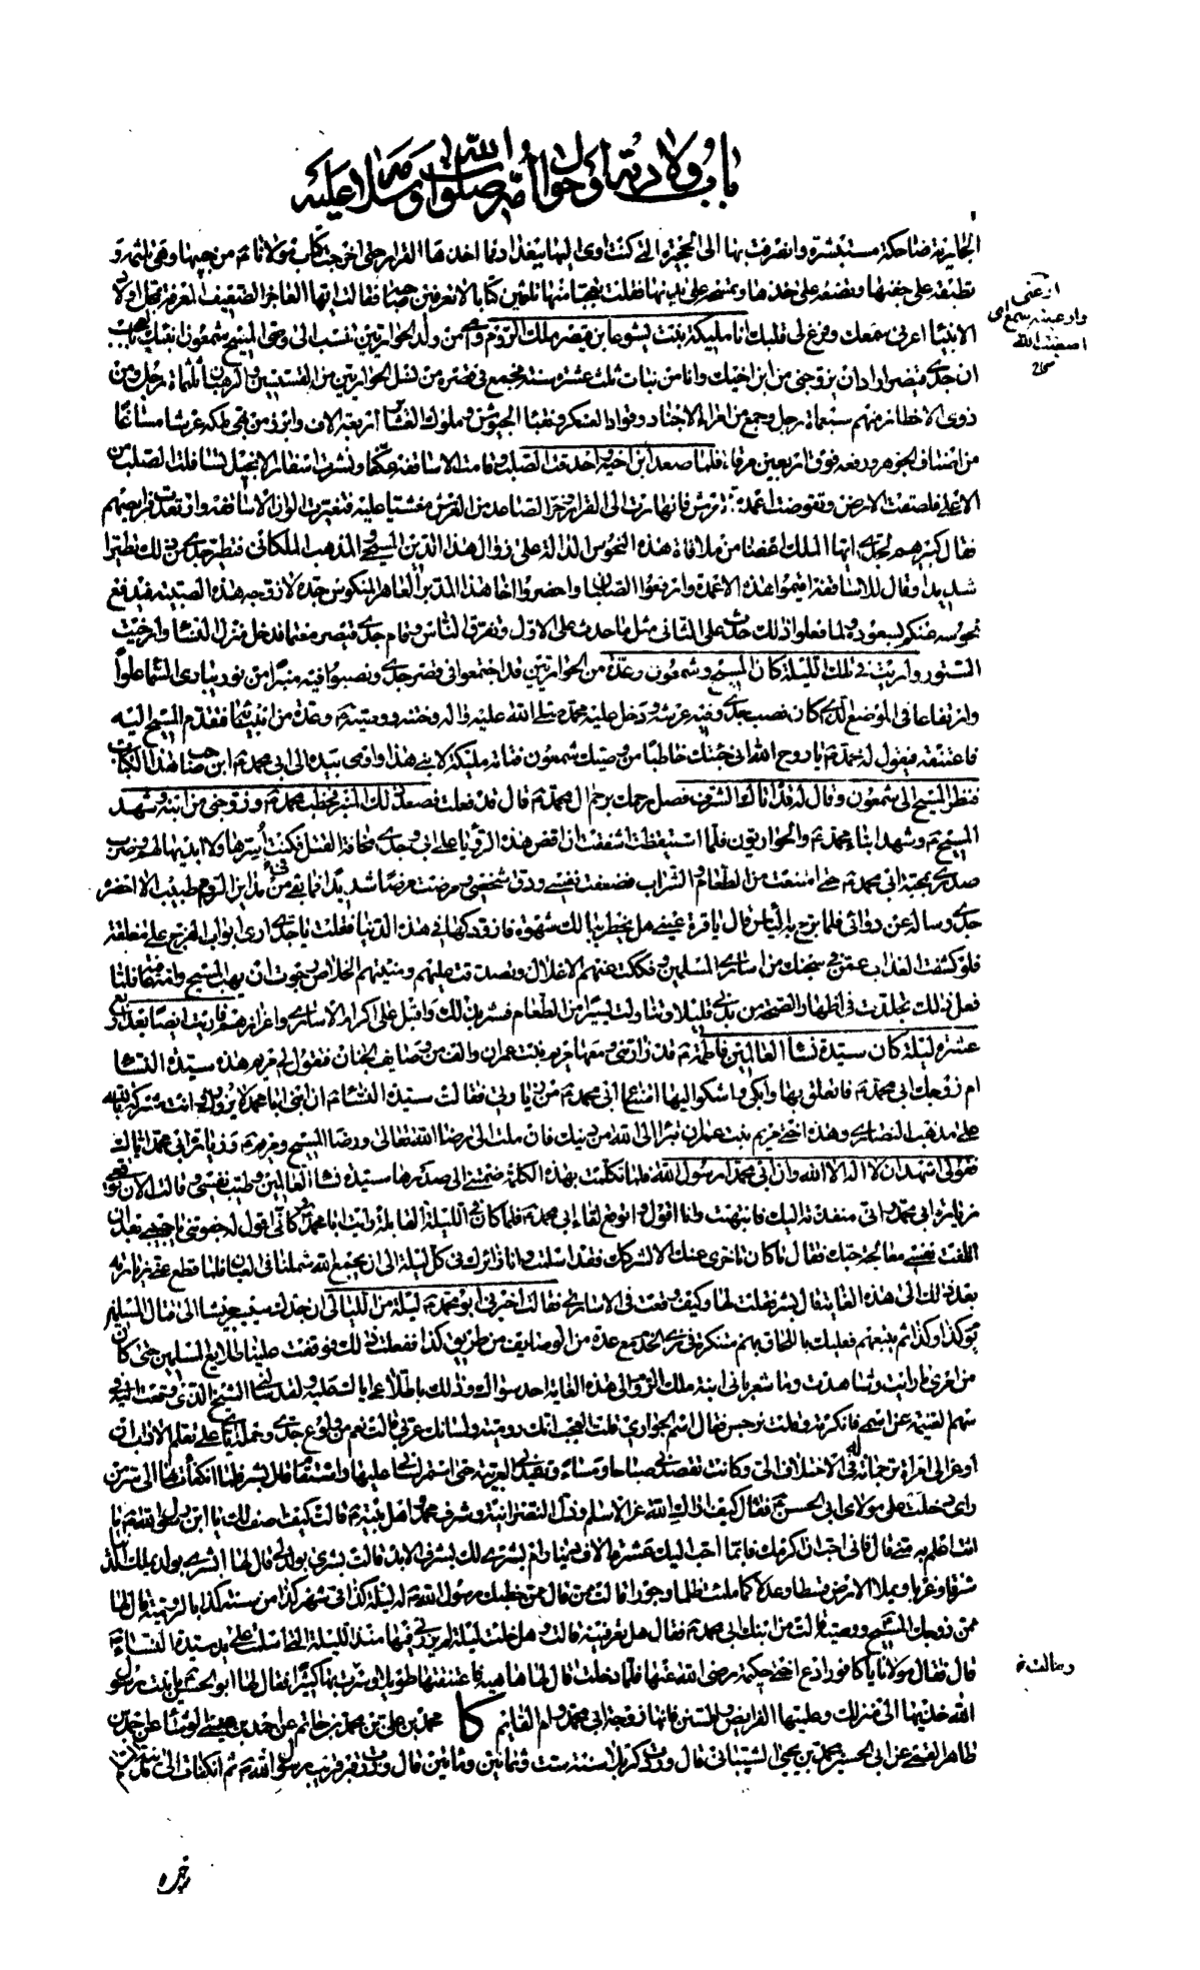 باب ولادته و أحوال أمه صلوات الله وسلامه عليه
الجارية ضاحكة مستبشرة وانصرفت بها الى الحجيرة التي كنت اوي اليها ببغداد فما اخذها القرار حتى اخرجت كتاب مولانا ع من جيبها وهي تلثمه و
تطبقه على جفنها وتضعه على خدها وتمسحه على بدنها فقلت تعجبا منها تلثمين كتابا لا تعرفين صاحبه فقالت ايها العاجز الضعيف المعرفة بمحل اولاد
الانبياء اعرني سمعك وفرغ لي قلبك انا مليكة بنت يشوعا بن قيصر ملك الروم وامي من ولد الحواريين تنسب الى وصي المسيح شمعون انبئك بالعجب
ان جدي قيصر اراد ان يزوجني من ابن اخيه وانا من بنات ثلث عشرة سنة فجمع في قصره من نسل الحواريين من القسيسين والرهبان ثلثمائة رجل ومن
ذوي الاخطار منهم سبعمائة رجل وجمع من امراء الاجناد وقواد العسكر ونقباء الجيوش وملوك العشائر اربعة الاف وابرز من بهي ملكه عرشا مساغا
من اصناف الجوهر ورفعه فوق اربعين مرقاة فلما صعد ابن اخيه واحدقت الصلب وقامت الاساقفة عكفا ونشرت اسفار الانجيل تسافلت الصلب من
الاعلى فلصقت الارض وتقوضت اعمدة العرش فانهارت الى القرار وخر الصاعد من العرش مغشيا عليه فتغيرت الوان الاساقفة وارتعدت فرائصهم
فقال كبيرهم لجدي ايها الملك اعفنا من ملاقاة هذه النحوس الدالة على زوال هذا الدين المسيحي والمذهب الملكاني فتطير جدي من ذلك تطيرا
شديدا وقال للاساقفة اقيموا هذه الاعمدة وارفعوا الصلبان واحضروا اخا هذا المدبر العاهر المنكوس جده لازوجه هذه الصبية فيدفع
نحوسه عنكم بسعوده ولما فعلوا ذلك حدث على الثاني مثل ما حدث على الاول وتفرق الناس وقام جدي قيصر مغتما فدخل منزل النساء وارخيت
الستور واريت في تلك الليلة كان المسيح وشمعون وعدة من الحواريين قد اجتمعوا في قصر جدي ونصبوا فيه منبرا من نور يباري السماء علوا
وارتفاعا في الموضع الذي كان نصب جدي وفيه عرشه ودخل عليه محمد صلى الله عليه واله وختنه ووصيه ع وعدة من ابنائه فتقدم المسيح اليه
فاعتنقه فيقول له محمد ص يا روح الله اني جئتك خاطبا من وصيك شمعون فتاته مليكة لابني هذا واومى بيده الى ابي محمد ع ابن صاحب هذا الكتاب
فنظر المسيح الى شمعون وقال له قد اتاك الشرف فصل رحمك برحم ال محمد ع قال قد فعلت فصعد ذلك المنبر فخطب محمد ص وزوجني من ابنه وشهد
المسيح ع وشهد ابناء محمد ع والحواريون فلما استيقظت اشفقت ان اقص هذه الرؤيا على ابي وجدي مخافة القتل فكنت اسرها ولا ابديها لهم وضرب
صدري بمحبة ابي محمد ع حتى امتنعت من الطعام والشراب فضعفت نفسي ودق شخصي ومرضت مرضا شديدا فما بقي من مداين الروم طبيب الا احضره
جدي وساله عن دوائي فلما برح به الياس قال يا قرة عيني هل يخطر ببالك شهوة فازودكها في هذه الدنيا فقلت يا جدي ارى ابواب الفرج علي مغلقة
فلو كشفت العذاب عمن في سجنك من اسارى المسلمين وفككت عنهم الاغلال وتصدقت عليهم ومنيتهم الخلاص رجوت ان يهب المسيح وامه عافية فلما
فعل ذلك تجلدت في اظهار الصحة من بدني قليلا وتناولت يسيرا من الطعام فسر بذلك واقبل على اكرام الاسارى واعزازهم فاريت ايضا بعد اربع
عشرة ليلة كان سيدة نساء العالمين فاطمة ع قد زارتني ومعها مريم بنت عمران والف من وصايف الجنان فتقول لي مريم هذه سيدة النساء
ام زوجك ابي محمد ع فاتعلق بها وابكي واشكو اليها امتناع ابي محمد ع من زيارتي فقالت سيدة النساء ع ان ابني ابا محمد لا يزورك وانت مشركة بالله
على مذهب النصارى وهذه اختي مريم بنت عمران تبرا الى الله من دينك فان ملت الى رضا الله تعالى ورضا المسيح ومريم ع وزيارة ابي محمد اياك
فقولي اشهد ان لا اله الا الله وان ابي محمدا رسول الله فلما تكلمت بهذه الكلمة ضمتني الى صدرها سيدة نساء العالمين وطيب نفسي وقالت الان توقعي
زيارة ابي محمد واني منفذته اليك فانتبهت وانا اقول واتوقع لقاء ابي محمد ع فلما كان في الليلة القابلة رايت ابا محمد ع وكاني اقول له جفوتني يا حبيبي بعد ان
اتلفت نفسي معالجة حبك فقال ما كان تاخري عنك الا لشركك فقد اسلمت وانا زائرك في كل ليلة الى ان يجمع الله شملنا في العيان فلما قطع عني زيارته
بعد ذلك الى هذه الغاية قال بشر فقلت لها وكيف وقعت في الاسارى فقالت اخبرني ابو محمد ع ليلة من الليالي ان جدك سيسير جيشا الى قتال المسلمين
يوم كذا وكذا ثم يتبعهم فعليك باللحاق بهم متنكرة في زي الخدم مع عدة من الوصايف من طريق كذا ففعلت ذلك فوقفت علينا طلايع المسلمين حتى كان
من امري ما رايت وشاهدت وما شعر باني ابنة ملك الروم الى هذه الغاية احد سواك وذلك باطلاعي اياك عليه ولقد سالني الشيخ الذي وقعت اليه في
سهم الغنيمة عن اسمي فانكرته وقلت نرجس فقال اسم الجواري قلت العجب انك رومية ولسانك عربي قالت نعم من ولوع جدي وحمله اياي على تعلم الاداب ان
اوعز الى امراة ترجمانة له في الاختلاف الي وكانت تقصدني صباحا ومساء وتفيدني العربية حتى استمر لساني عليها واستقام قال بشر فلما انكفات بها الى سر من
راى دخلت على مولاي ابي الحسن ع فقال كيف اراك الله عز الاسلام وذل النصرانية وشرف محمد واهل بيته ع قالت كيف اصف لك يا ابن رسول الله ص ما
انت اعلم به مني قال فاني احب ان اكرمك فايما احب اليك عشرة الاف دينار ام بشرى لك بشرف الابد قالت بشرى بولد لي قال لها ابشري بولد يملك الدنيا
شرقا وغربا ويملا الارض قسطا وعدلا كما ملئت ظلما وجورا قالت ممن قال ممن خطبك رسول الله ص له ليلة كذا في شهر كذا من سنة كذا بالرومية قال لها
ممن زوجك المسيح ووصيه قالت من ابنك ابي محمد ع فقال هل تعرفينه قالت وهل خلت ليلة لم يزرني فيها منذ الليلة التي اسلمت على يد سيدة النساء ع
قال فقال مولانا يا كافور ادع اختي حكيمة رضي الله عنها فلما دخلت قال لها ها هيه فاعتنقتها طويلا وسرت بها كثيرا فقال لها ابو الحسن ع يا بنت رسول
الله خذيها الى منزلك وعلميها الفرايض والسنن فانها زوجة ابي محمد وام القايم كا محمد بن علي بن محمد بن حاتم عن احمد بن عيسى الوشا عن احمد بن
طاهر القمي عن ابي الحسين محمد بن يحيى الشيباني قال وردت كربلا سنة ست وثمانين ومائتين قال وزرت قبر غريب رسول الله ص ثم انكفات الى مدينة
ارعني
وارعيته سمعي اي
اصغيت اليه
صحاح
وقالت خ